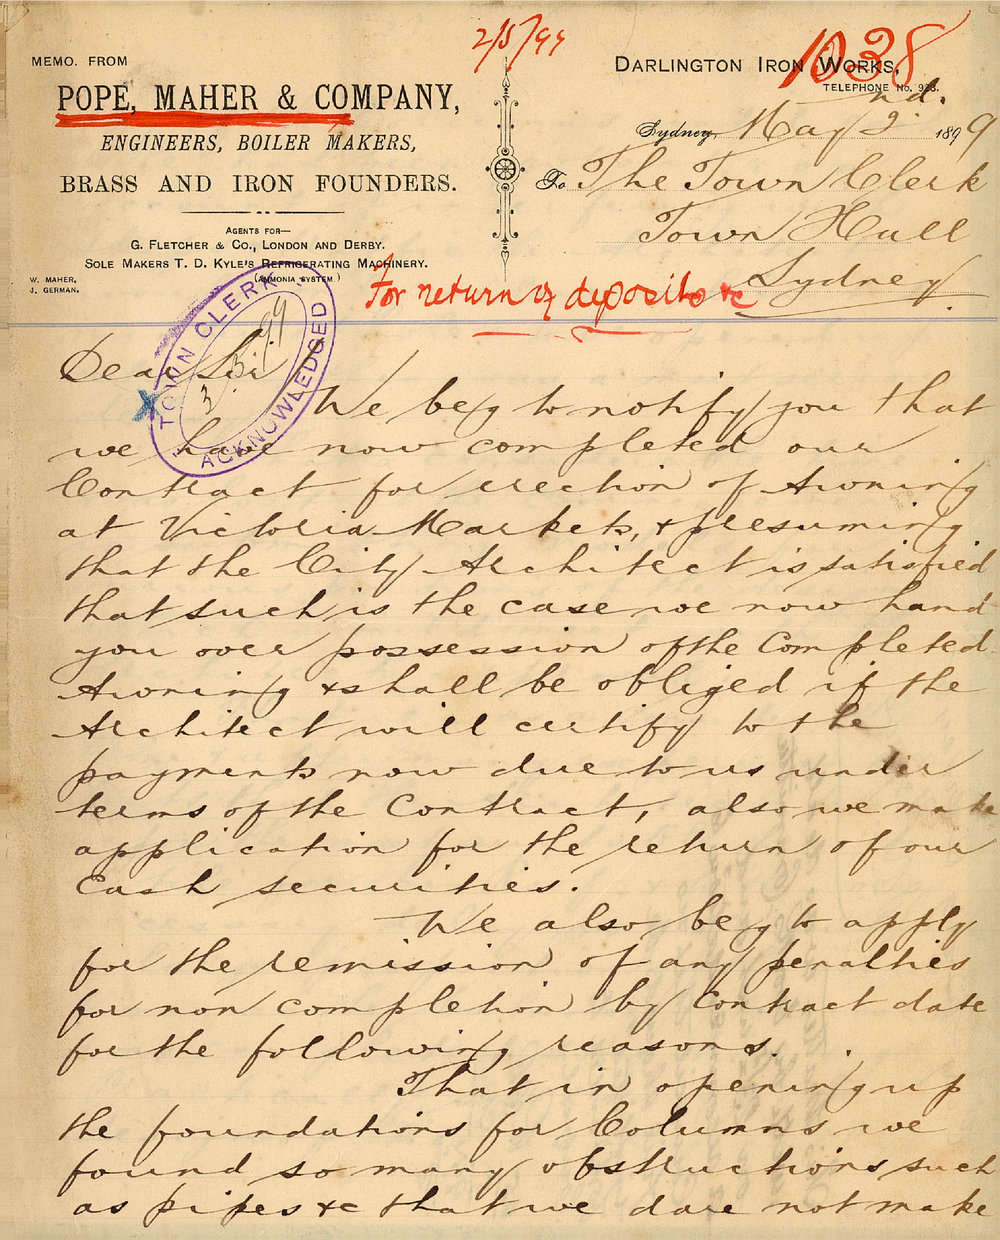 2/5/99
1038
MEMO. FROM
POPE, MAHER & COMPANY,
ENGINEERS, BOILER MAKERS,
BRASS AND IRON FOUNDERS.
AGENTS FOR—
G. FLETCHER & CO., LONDON AND DERBY.
SOLE MAKERS T. D. KYLE'S REFRIGERATING MACHINERY.
(AMMONIA SYSTEM)
W. MAHER,
J. GERMAN.
DARLINGTON IRON WORKS,
TELEPHONE No. 923.
Sydney, May 2nd. 1899
To The Town Clerk
Town Hall
Sydney
For return of deposits &c
TOWN CLERK
3.5.99
ACKNOWLEDGED
x
Dear Sir
We beg to notify you that
we have now completed our
Contract for erection of Awning
at Victoria Markets, & presuming
that the City Architect is satisfied
that such is the case we now hand
you over possession of the Completed
Awning & shall be obliged if the
Architect will certify to the
payments now due to us under
terms of the Contract, also we make
application for the return of our
Cash securities.
We also beg to apply
for the remission of any penalties
for non completion by Contract date
for the following reasons.
That in opening up
the foundations for Columns we
found so many obstructions such
as pipes &c that we dare not make